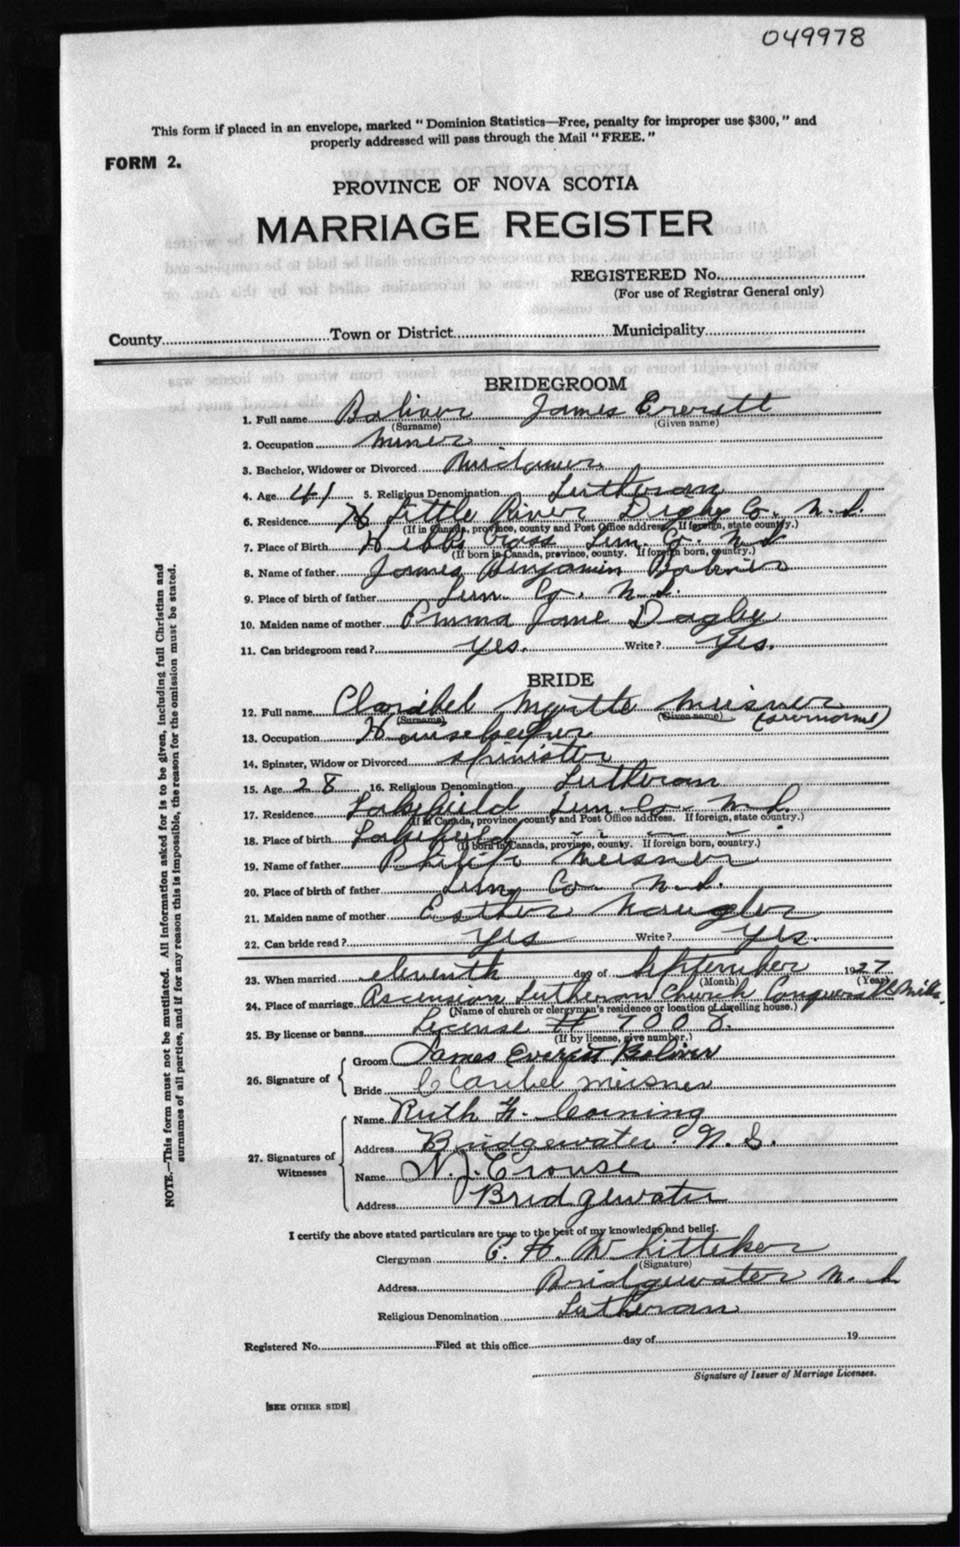 049978
This form if placed in an envelope, marked "Dominion Statistics—Free, penalty for improper use $300," and
properly addressed will pass through the Mail "FREE."
FORM 2.
PROVINCE OF NOVA SCOTIA
MARRIAGE REGISTER
REGISTERED No.
(For use of Registrar General only)
County Town or District Municipality
BRIDEGROOM
1. Full name Boliver James Everett
(Surname) (Given name)
2. Occupation Miner
3. Bachelor, Widower or Divorced Widower
4. Age 41 5. Religious Denomination Lutheran
6. Residence Little River Digby Co. N.S.
(If in Canada, province, county and Post Office address. If foreign, state country.)
7. Place of Birth Hibbs Cross Lun. Co. N.S.
(If born in Canada, province, county. If foreign born, country.)
8. Name of father James Benjamin Boliver
9. Place of birth of father Lun. Co. N.S.
10. Maiden name of mother Emma Jane
11. Can bridegroom read? Yes. Write? Yes.
BRIDE
12. Full name Claribel Myrtle Meisner
(Surname) (Given name) (surname)
13. Occupation Housekeeper
14. Spinster, Widow or Divorced Spinster
15. Age 28 16. Religious Denomination Lutheran
17. Residence Lakefield Lun. Co. N.S.
(If in Canada, province, county and Post Office address. If foreign, state country.)
18. Place of birth Lakefield " " " "
(If born in Canada, province, county. If foreign born, country.)
19. Name of father Philip Meisner
20. Place of birth of father Lun. Co. N.S.
21. Maiden name of mother Esther Naugler
22. Can bride read? Yes Write? Yes.
23. When married eleventh day of September 1927
(Month) (Year)
24. Place of marriage Ascension Lutheran Church Conquerall Mills.
(Name of church or clergyman's residence or location of dwelling house.)
25. By license or banns License # 7008.
(If by license, give number.)
26. Signature of
Groom James Everett Boliver
Bride Claribel Meisner
27. Signatures of Witnesses
Name Ruth H. Corning
Address Bridgewater. N.S.
Name N. J. Crouse
Address Bridgewater
I certify the above stated particulars are true to the best of my knowledge and belief.
Clergyman C. H. Whitteker
(Signature)
Address Bridgewater N.S.
Religious Denomination Lutheran
Registered No. Filed at this office day of 19
Signature of Issuer of Marriage Licenses.
[SEE OTHER SIDE]
NOTE.—This form must not be mutilated. All information asked for is to be given, including full Christian and
surnames of all parties, and if for any reason this is impossible, the reason for the omission must be stated.